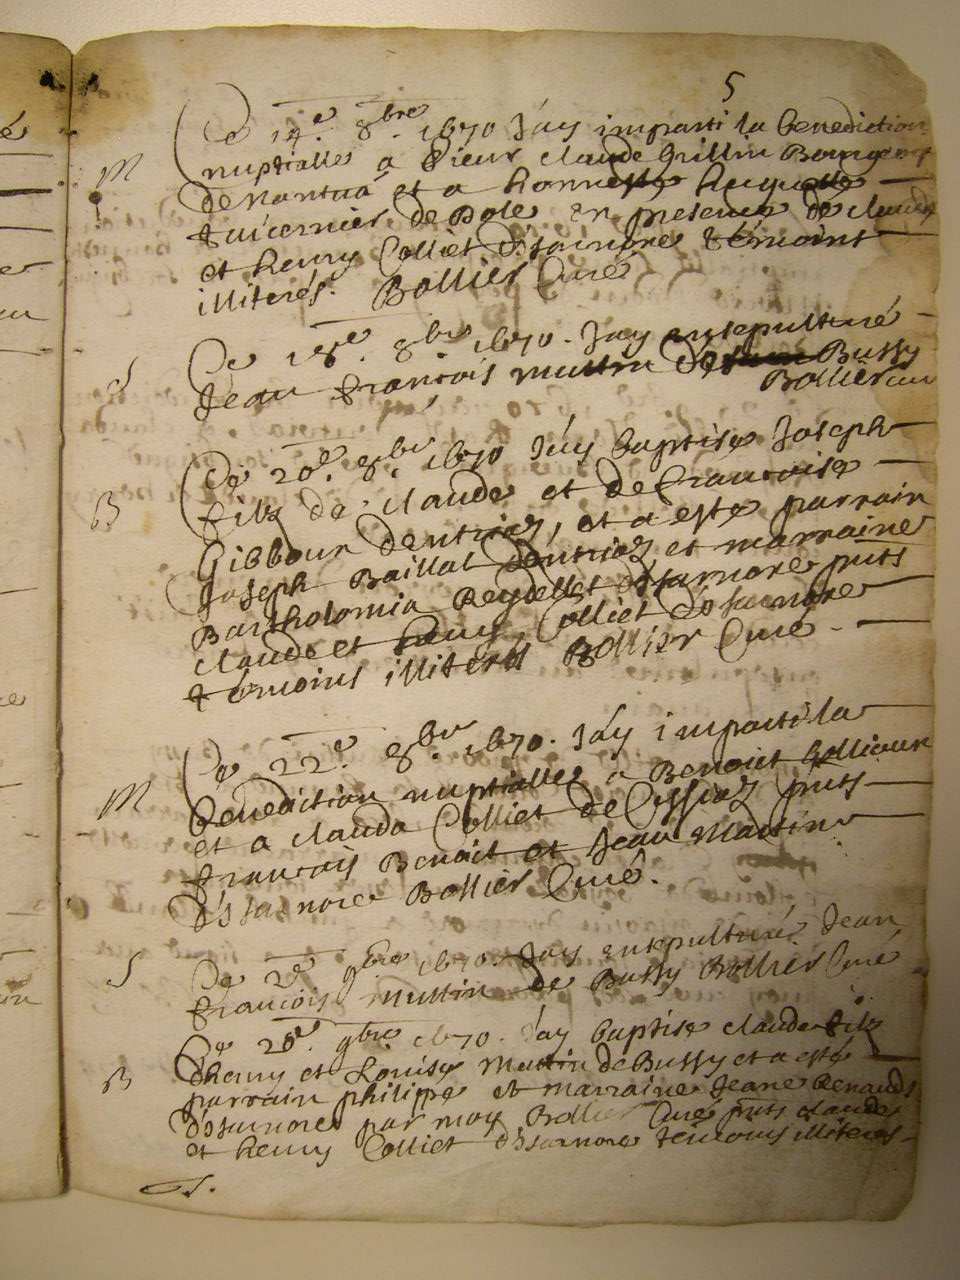 5
M
Ce 14e. 8bre. 1670 J'ay imparti la benediction
nuptialle a Sieur Claude Grillin Bourgeois
de Nantua et a honneste huguette
tuicernier de Dole en presence de claude
et henry Colliet d'ssarnore temoins
illiterés. Bollier Curé
S
Ce 18e. 8bre. 1670. J'ay ensepulturé
Jean francois muttin de Bussy
Bollier cur
B
Ce 20e. 8bre. 1670 J'ay baptise Joseph
filz de claude et de Francoise
Gibbour dentriaz, et a este parrain
Joseph Baillat dentriaz et marraine
Bartholomia Reydellet d'ssarnore pnts
claude et henry Colliet d'ssarnore
temoins illiterés Bollier Curé.
M
Ce 22e. 8bre 1670. J'ay imparti la
benediction nuptialle a Benoict
et a clauda Colliet de Cessiaz pnts
francois Benoit et Jean Martin
d'ssarnore Bollier Curé.
S
Ce 2e 9bre 1670. J'ay ensepulturé Jean
francois muttin de Bussy Bollier Curé
B
Ce 28e. 9bre 1670. J'ay baptise claude filz
d'henry et Louise Muttin de Bussy et a esté
parrain philippe et marraine Jeane Renaude
d'ssarnore par moy Bollier Curé pnts claude
et henry Colliet d'ssarnore temoins illiteres